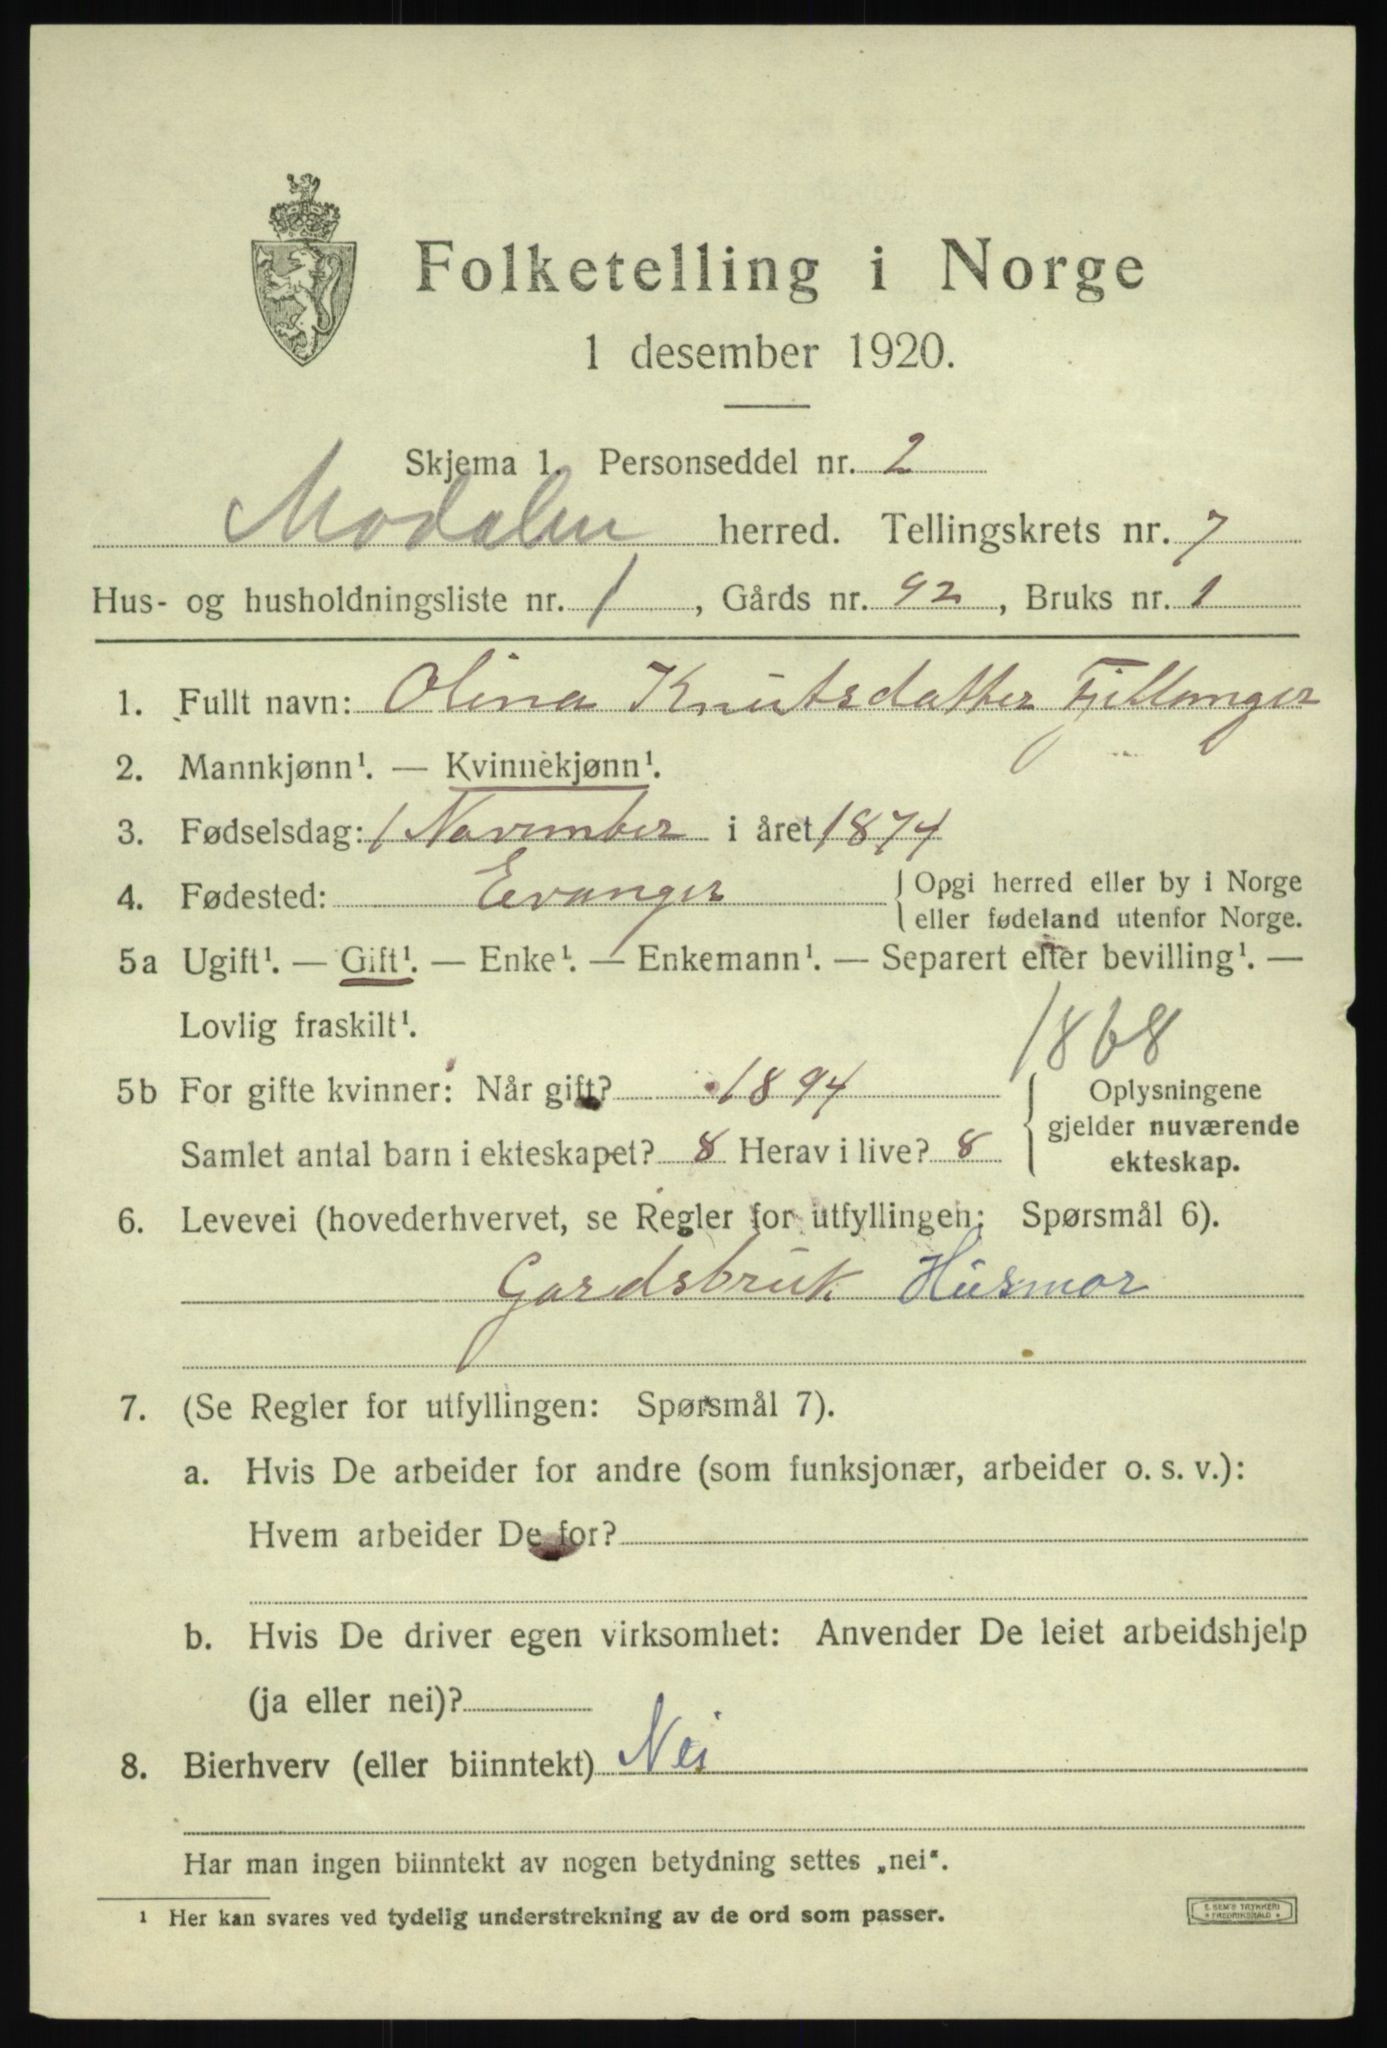 Folketelling i Norge
1 desember 1920.
Skjema 1. Personseddel nr. 2
Modalen herred. Tellingskrets nr. 7
Hus- og husholdningsliste nr. 1, Gårds nr. 92, Bruks nr. 1
1. Fullt navn: Olina Knutsdatter Fjellanger
2. Mannkjønn¹. — Kvinnekjønn¹.
3. Fødselsdag: 1 November i året 1874
4. Fødested: Evanger { Opgi herred eller by i Norge
eller fødeland utenfor Norge.
5a Ugift¹. — Gift¹. — Enke¹. — Enkemann¹. — Separert efter bevilling¹. —
Lovlig fraskilt¹.
1868
5b For gifte kvinner: Når gift? 1894
Samlet antal barn i ekteskapet? 8 Herav i live? 8
{ Oplysningene
gjelder nuværende
ekteskap.
6. Levevei (hovederhvervet, se Regler for utfyllingen: Spørsmål 6).
Gardsbruk Husmor
7. (Se Regler for utfyllingen: Spørsmål 7).
a. Hvis De arbeider for andre (som funksjonær, arbeider o. s. v.):
Hvem arbeider De for?
b. Hvis De driver egen virksomhet: Anvender De leiet arbeidshjelp
(ja eller nei)?
8. Bierhverv (eller biinntekt) Nei
Har man ingen biinntekt av nogen betydning settes „nei“.
¹ Her kan svares ved tydelig understrekning av de ord som passer.
E. SEM'S TRYKKERI
FREDRIKSHALD